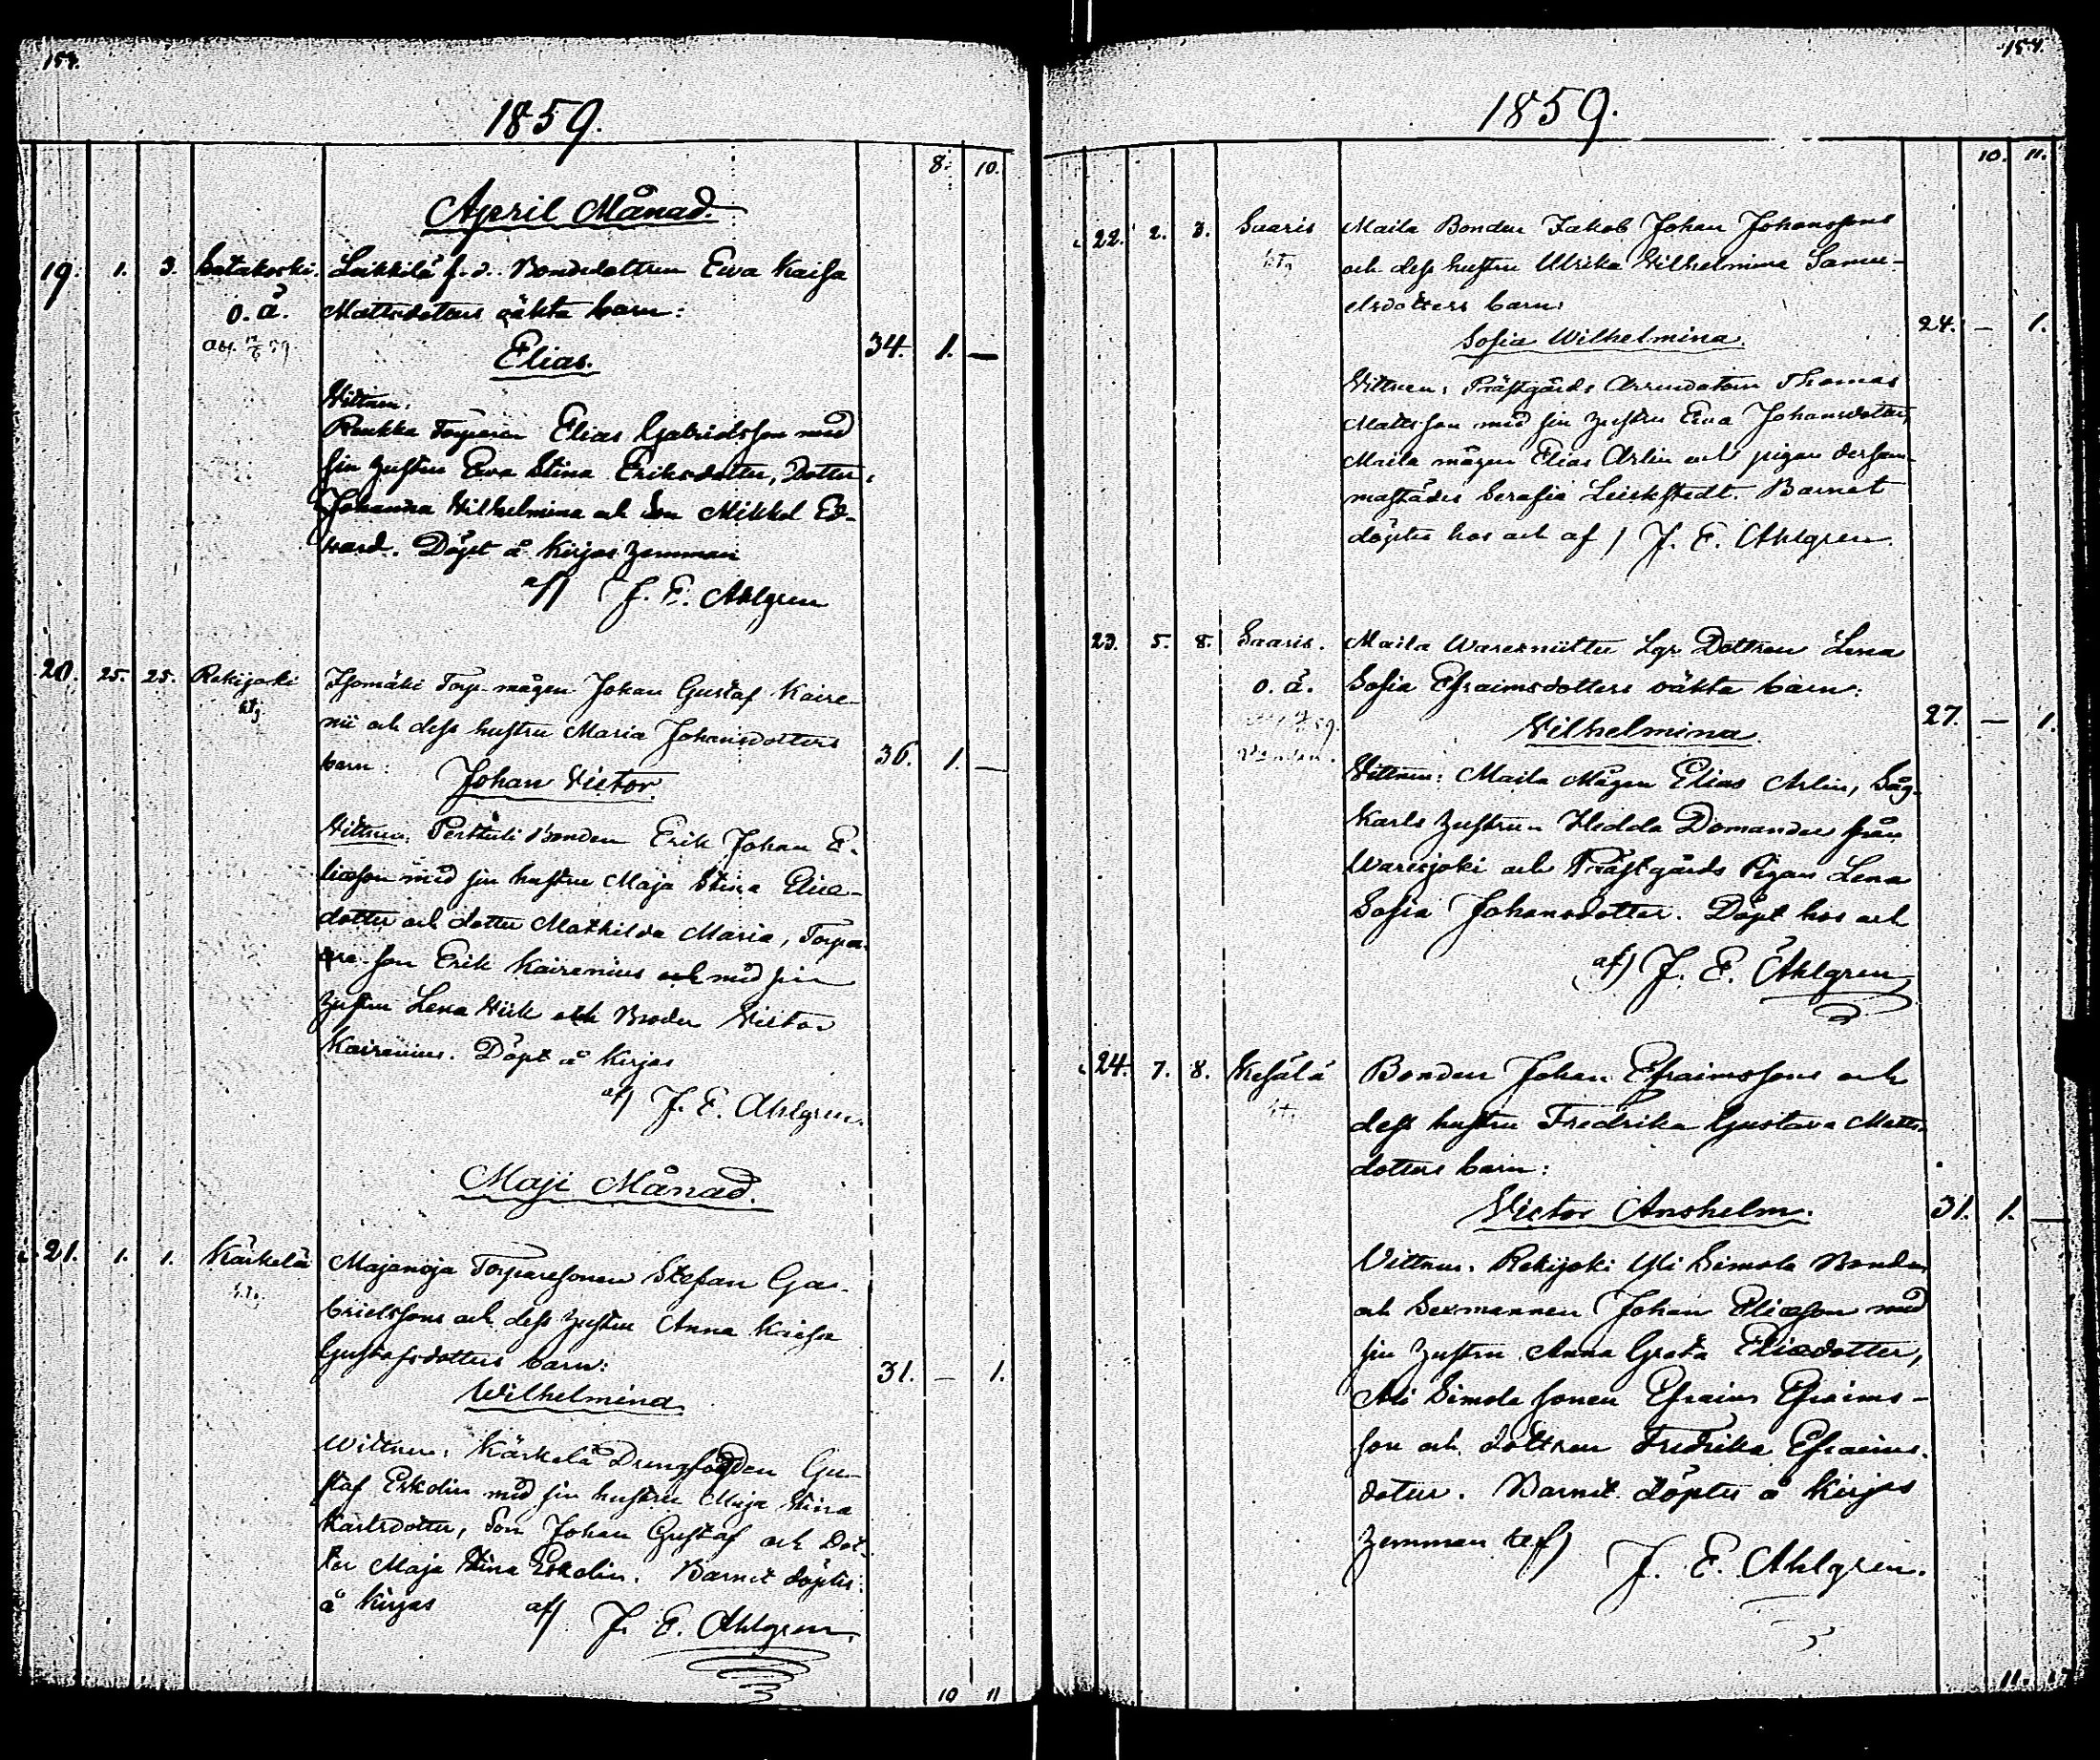 154.
1859.
8. 10.
April Månad.
19. 1. 3. Satakoski. Leikkilä f. d. Bondedottren Ewa Kaisa
o. ä. Mattsdotters oäkta barn:
Elias. 34. 1. —
Wittnen:
Renkka Torparen Elias Gabrielsson med
sin hustru Ewa Stina Eriksdotter, Dotter
Johanna Wilhelmina och Son Mikkel Ed-
vard. Döpt å Kirjas hemman
af) J. E. Ahlgren
20. 25. 25. Rekijoki Isomäki Torp. mågen Johan Gustaf Kaire-
ktg nii och dess hustru Maria Johansdotters
barn: Johan Victor. 36. 1. —
Wittnen: Perttuli Bonden Erik Johan E-
liasson med sin hustru Maja Stina Elias-
dotter och dotter Mathilda Maria, Torpa-
re son Erik Kairenius och med sin
hustru Lena Wick och Broder Victor
Kairenius. Döpt å Kirjas
af) J. E. Ahlgren.
Maji Månad.
21. 1. 1. Kärkelä Majanoja Torparesonen Stefan Ga-
ktg. brielssons och dess hustru Anna Kaisa
Gustafsdotters barn: 31. — 1.
Wilhelmina
Wittnen: Kärkelä Drengfogden Gu-
staf Eskolin med sin hustru Maja Stina
Karlsdotter, Son Johan Gustaf och Dot-
ter Maja Stina Eskolin. Barnet döptes
å Kirjas af) J. E. Ahlgren.
10 11
154.
1859.
10. 11.
22. 2. 3. Saaris Maila Bonden Jakob Johan Johanssons
ktg och dess hustru Ulrika Wilhelmina Samu-
elsdotters barn:
Sofia Wilhelmina. 24. — 1.
Wittnen: Prästgårds Arrendatorn Thomas
Mattsson med sin hustru Ewa Johansdotter,
Maila mågen Elias Arlin och pigan dersam-
mastädes Serafia Leickstedt. Barnet
döptes hos och af) J. E. Ahlgren.
23. 5. 8. Saaris. Maila Lgr Dottren Lena
o. ä. Sofia Efraimsdotters oäkta barn:
Wilhelmina. 27. — 1.
Wittnen: Maila Mågen Elias Arlin, Såg-
Karls hustrun Hedda Domander från
Warisjoki och Prästgårds Pigan Lena
Sofia Johansdotter. Döpt hos och
af) J. E. Ahlgren
24. 7. 8. Kesälä Bonden Johan Efraimssons och
dess hustru Fredrika Gustava Matts-
dotters barn:
Victor Anshelm. 31. 1. —
Vittnen: Rekijoki Yli Simola Bonden
och Sexmannen Johan Eliasson med
sin hustru Anna Greta Eliasdotter,
Ali Simola sonen Efraim Efraims-
son och dottren Fredrika Efraims-
dotter. Barnet döptes å Kirjas
hemman af)
J. E. Ahlgren.